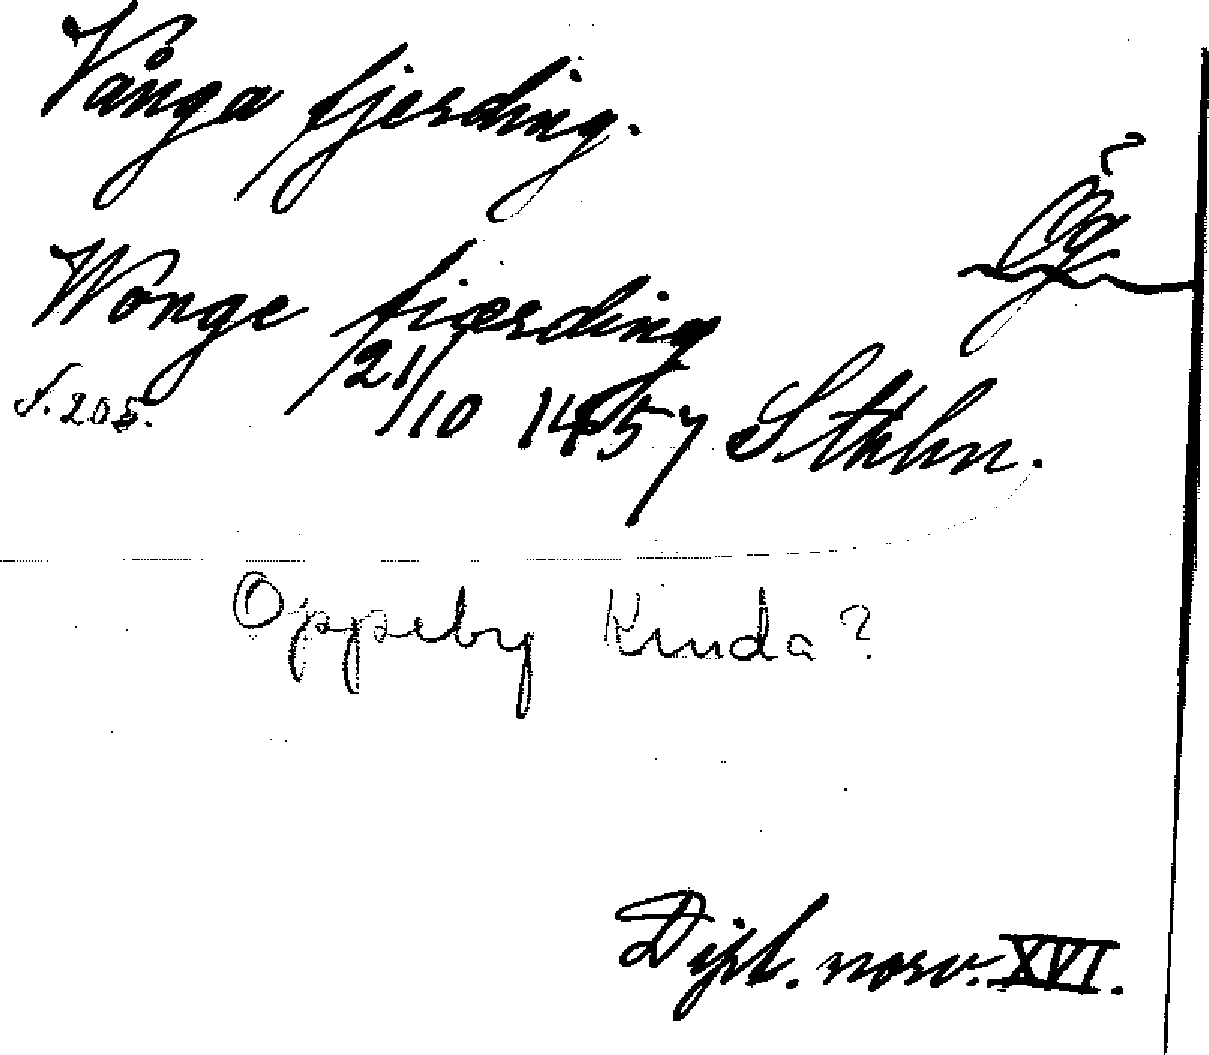 Vånga fjerding.
Ög
Wonge fiærding
s. 205.
21/10 1457 Sthlm.
Oppeby Kinda?
Dipl. norv. XVI.